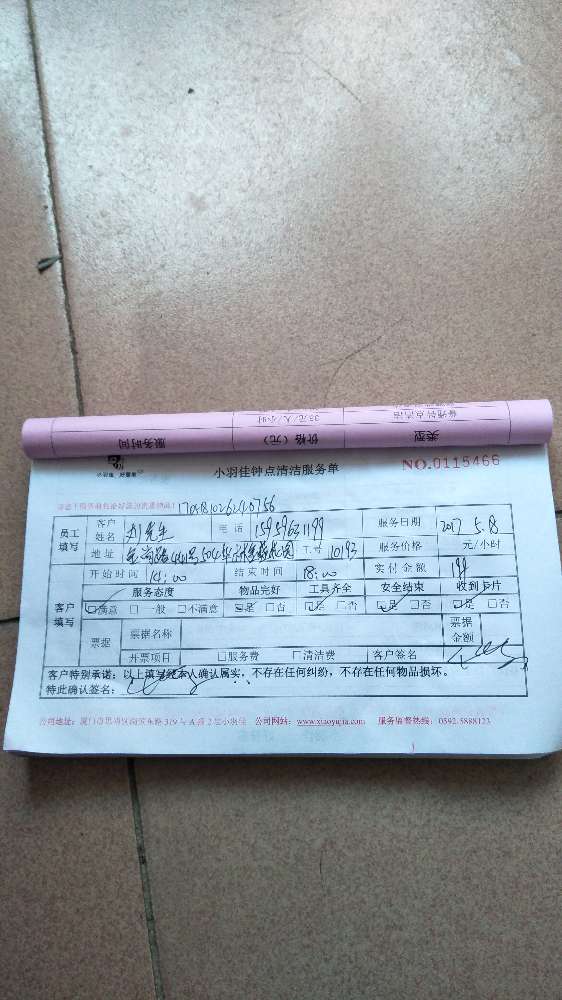 类型 价格（元） 服务时间
普通钟点清洁 35元/人/小时
小羽佳 好服务
小羽佳钟点清洁服务单 NO.0115466
员工填写 客户姓名 刘先生 电话 15959631199 服务日期 2017 5.8
地址 工号 10193 服务价格 元/小时
开始时间 14:00 结束时间 18:00 实付金额
客户填写 服务态度 物品完好 工具齐全 安全结束 收到卡片
☑满意 □一般 □不满意 ☑是 □否 ☑是 □否 ☑是 □否 ☑是 □否
票据 票据名称 票据金额
开票项目 □服务费 □清洁费 客户签名
客户特别承诺：以上填写经本人确认属实，不存在任何纠纷，不存在任何物品损坏。
特此确认签名：
公司地址：厦门市思明区 319号A栋2楼小羽佳 公司网站：www.xiaoyujia.com 服务监督热线：0592.5888123